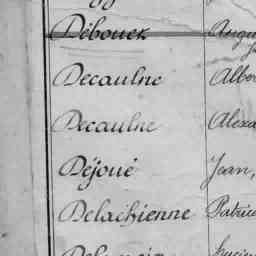 Débouek Augu
Decaulne Albe
Decaulne Alexa
Déjoué Jean,
Delachienne Patric